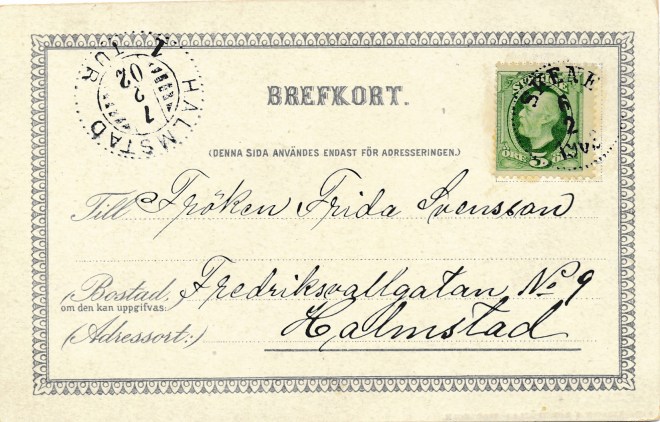 HALMSTAD
1
TUR
1
2
02
BREFKORT.
SKENE
6
2
1902
(DENNA SIDA ANVÄNDES ENDAST FÖR ADRESSERINGEN.)
Till Fröken Frida Svensson
(Bostad, Fredriksvallgatan No 9
om den kan uppgifvas:)
(Adressort:) Halmstad